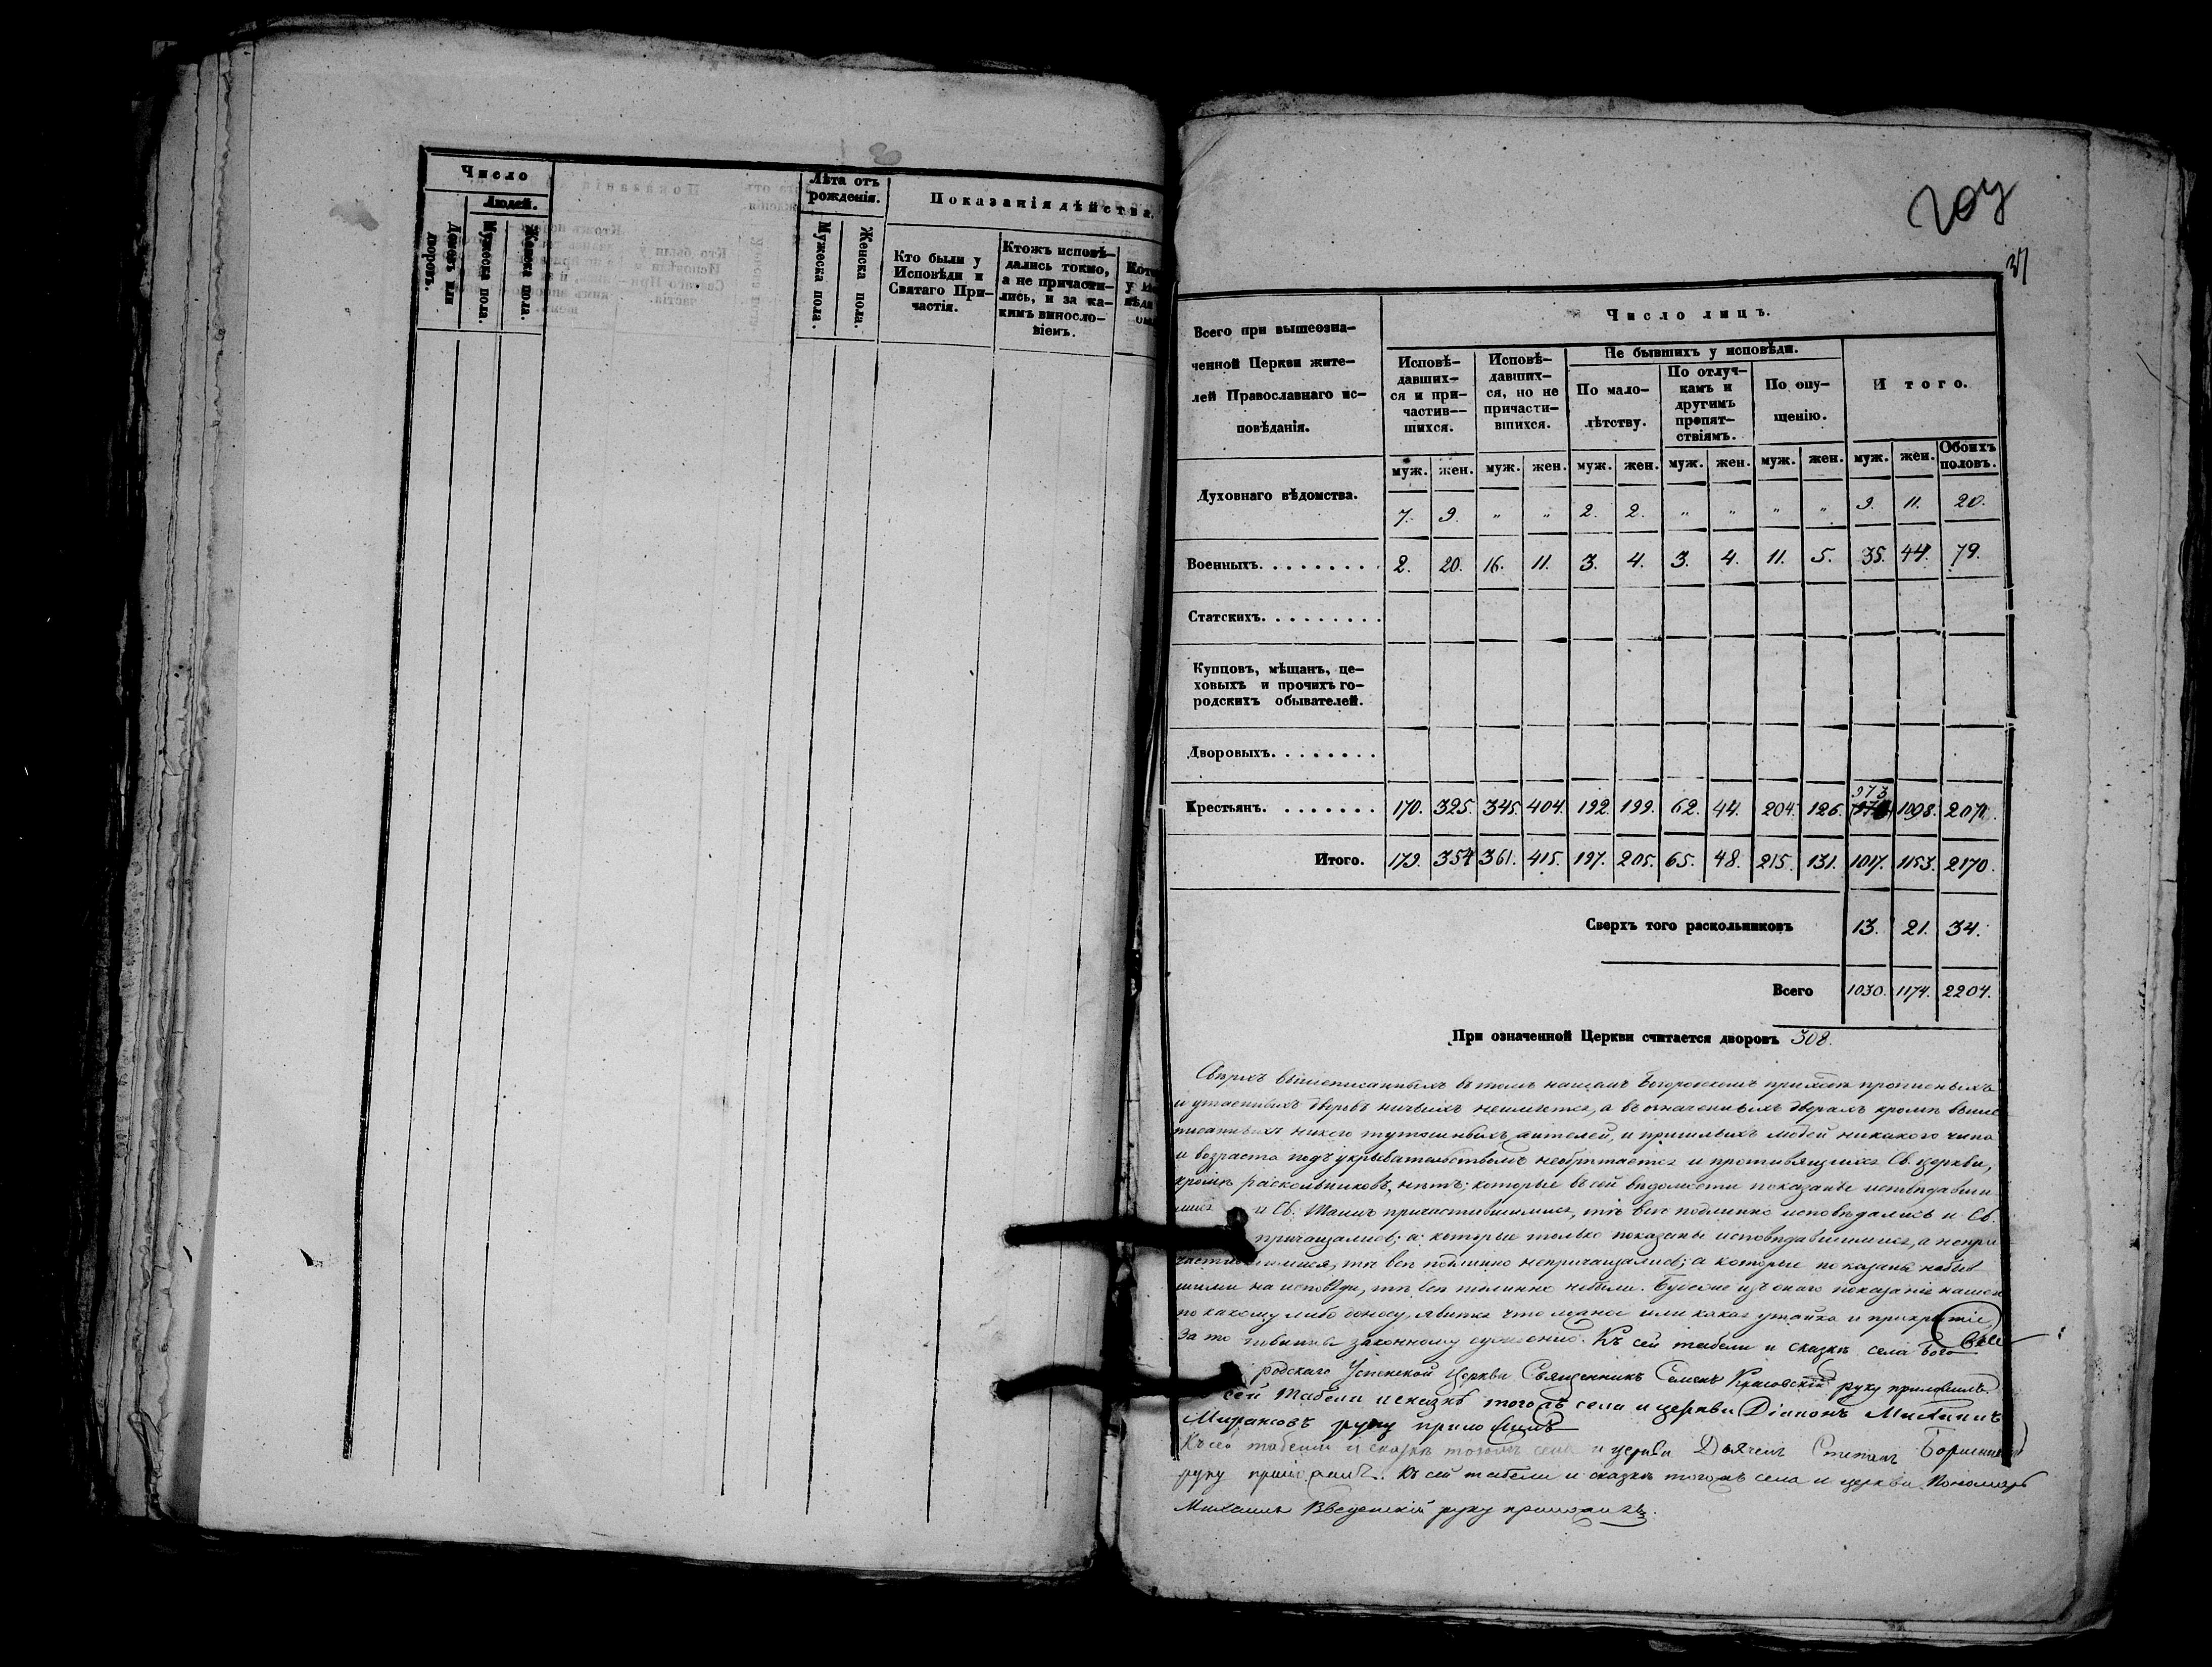 Число
Людей.
Домовъ или дворовъ.
Мужеска пола.
Женска пола.
Лѣта отъ рожденія.
Мужеска пола.
Женска пола.
Показанія дѣйства.
Кто были у
Исповѣди и
Святаго При-
частія.
Ктожъ исповѣ-
дались токмо,
а не причасти-
лись, и за ка-
кимъ винослo-
віемъ.
204
Всего при вышеозна-
ченной Церкви жите-
лей Православнаго ис-
повѣданія.
Число лицъ.
Исповѣ-
давших-
ся и при-
частив-
шихся.
Исповѣ-
давших-
ся, но не
причасти-
вшихся.
Не бывшихъ у исповѣди.
По мало-
лѣтству.
По отлуч-
камъ и
другимъ
препят-
ствіямъ.
По опу-
щенію.
Итого.
муж. жен. муж. жен. муж. жен. муж. жен. муж. жен. муж. жен. Обоихъ половъ.
Духовнаго вѣдомства.
7. 9. " " 2. 2. " " " " 9. 11. 20.
Военныхъ. . . . . . . . 2. 20. 16. 11. 3. 4. 3. 4. 11. 5. 35. 44. 79.
Статскихъ. . . . . . . . .
Купцовъ, мѣщанъ, це-
ховыхъ и прочихъ го-
родскихъ обывателей.
Дворовыхъ. . . . . . . .
973
Крестьянъ. . . . . . . . 170. 325. 345. 404. 192. 199. 62. 44. 204. 126. 1098. 2071.
Итого. 179. 354 361. 415. 197. 205. 65. 48. 215. 131. 1017. 1153. 2170.
Сверхъ того раскольниковъ 13. 21. 34.
Всего 1030. 1174. 2204.
При означенной Церкви считается дворовъ 308.
Сверхъ вышеписанныхъ въ томъ нашемъ Богородскомъ приходѣ
и утаенныхъ дворовъ ничьихъ неимѣется, а въ означенныхъ дворахъ кромѣ выше
писанныхъ никого тутошныхъ жителей, и пришлыхъ людей никакого чина
и возраста подъ укрывательствомъ необрѣтается и противящихся Св. церкви,
кромѣ раскольниковъ, нѣтъ; которые въ сей вѣдомости показаны исповѣдавши
мися и Св. Таинъ причастившимися, тѣ всѣ подлинно исповѣдались и Св.
причащались; а которые только показаны исповѣдавшимися, а непри
частившимися, тѣ всѣ подлинно непричащались; а которые показаны небыв
шими на исповѣди, тѣ всѣ подлинно небыли. Буде же изъ онаго показанія нашего
по какому либо доносу, явится что ложное или какая утайка и прикрытіе,
За то законному сужденію. Къ сей табели и сказкѣ села Бого
родскаго Успенской Церкви Священникъ Семенъ руку приложилъ.
сей табели и сказкѣ тогожъ села и церкви Діаконъ
руку приложилъ
Къ сей табели и сказкѣ тогожъ села и церкви Дьячекъ Степанъ
руку приложилъ. Къ сей табели и сказкѣ тогожъ села и церкви Пономарь
Михаилъ Введенскій руку приложилъ.